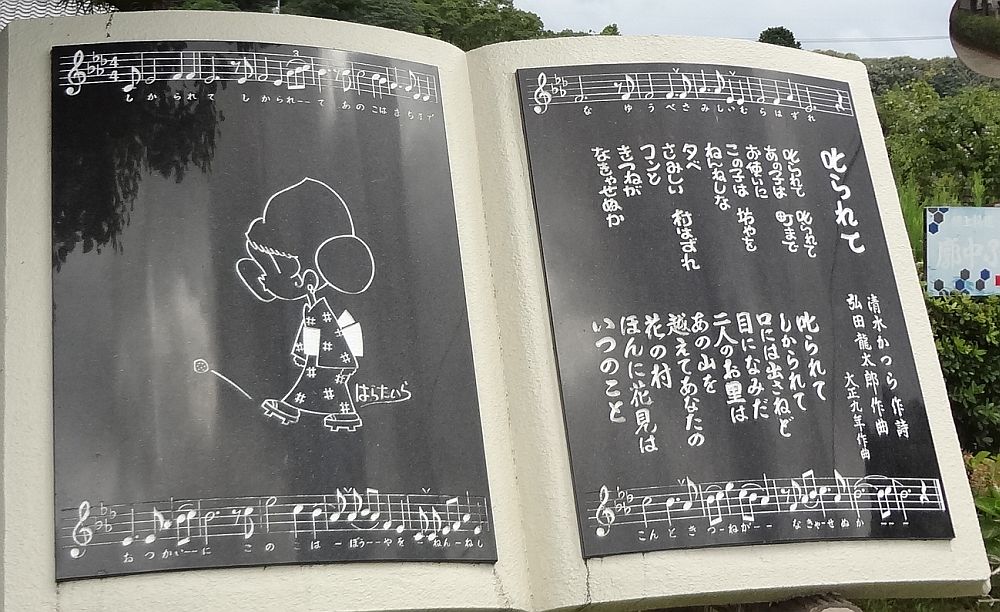 しかられて しかられーーて あのこは まちまで
はらたいら
おつかいーーに このこは ーぼうーーやを ーねんーねし
なゆうべさみしいむらはずれ
叱られて
清水かつら 作詩
弘田龍太郎 作曲
大正九年作曲
叱られて 叱られて
あの子は 町まで
お使いに
この子は 坊やを
ねんねしな
夕べ
さみしい 村はずれ
コンと
きつねが
なきゃせぬか
叱られて
しかられて
口には出さねど
目になみだ
二人のお里は
あの山を
越えてあなたの
花の村
ほんに花見は
いつのこと
こんときつーねがーー なきゃーせぬかーーー